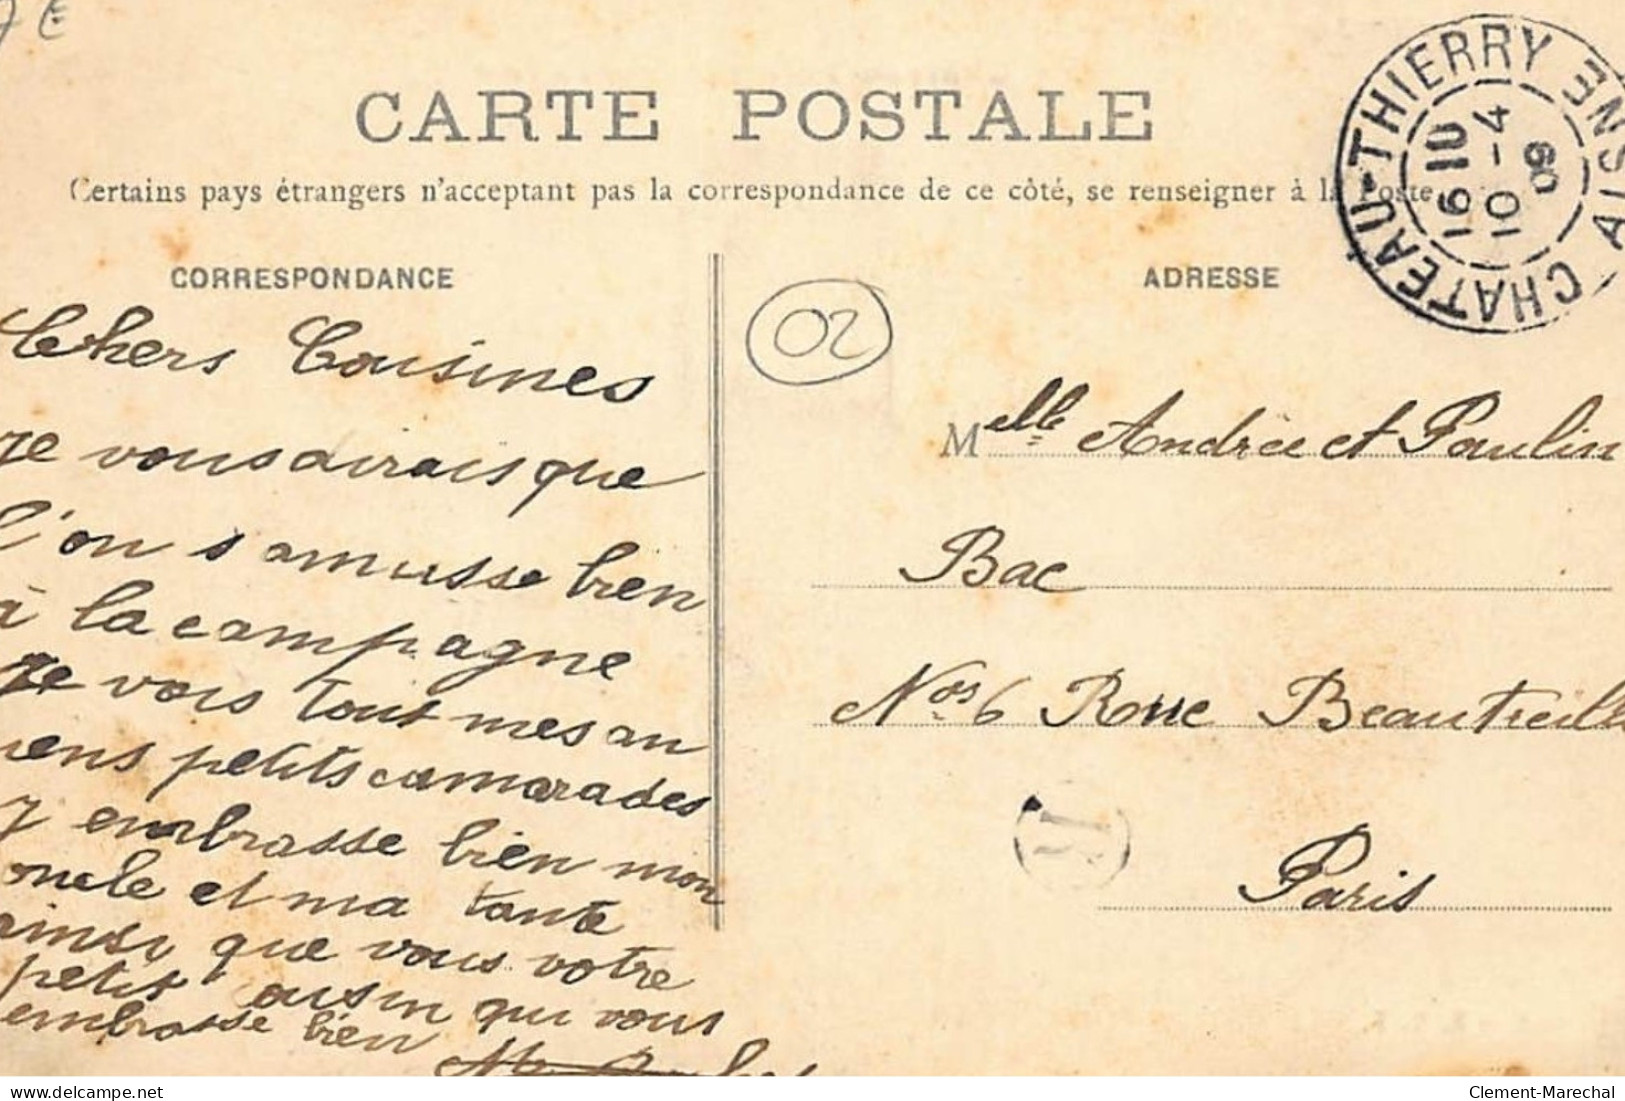 7 E
CARTE POSTALE
Certains pays étrangers n'acceptant pas la correspondance de ce côté, se renseigner à la Poste
CORRESPONDANCE
Chers Cousines
je vous dirais que
l'on s amusse bien
à la campagne
je vois tout mes an
iens petits camarades
J embrasse bien mon
oncle et ma tante
ainsi que vous votre
petit cousin qui vous
embrasse bien
ADRESSE
CHATEAU-THIERRY AISNE
16 10
10 - 4
09
02
Melle Andrée et Paulin
Bac
Nos 6 Rue Beautreill
Paris
Clement-Marechal